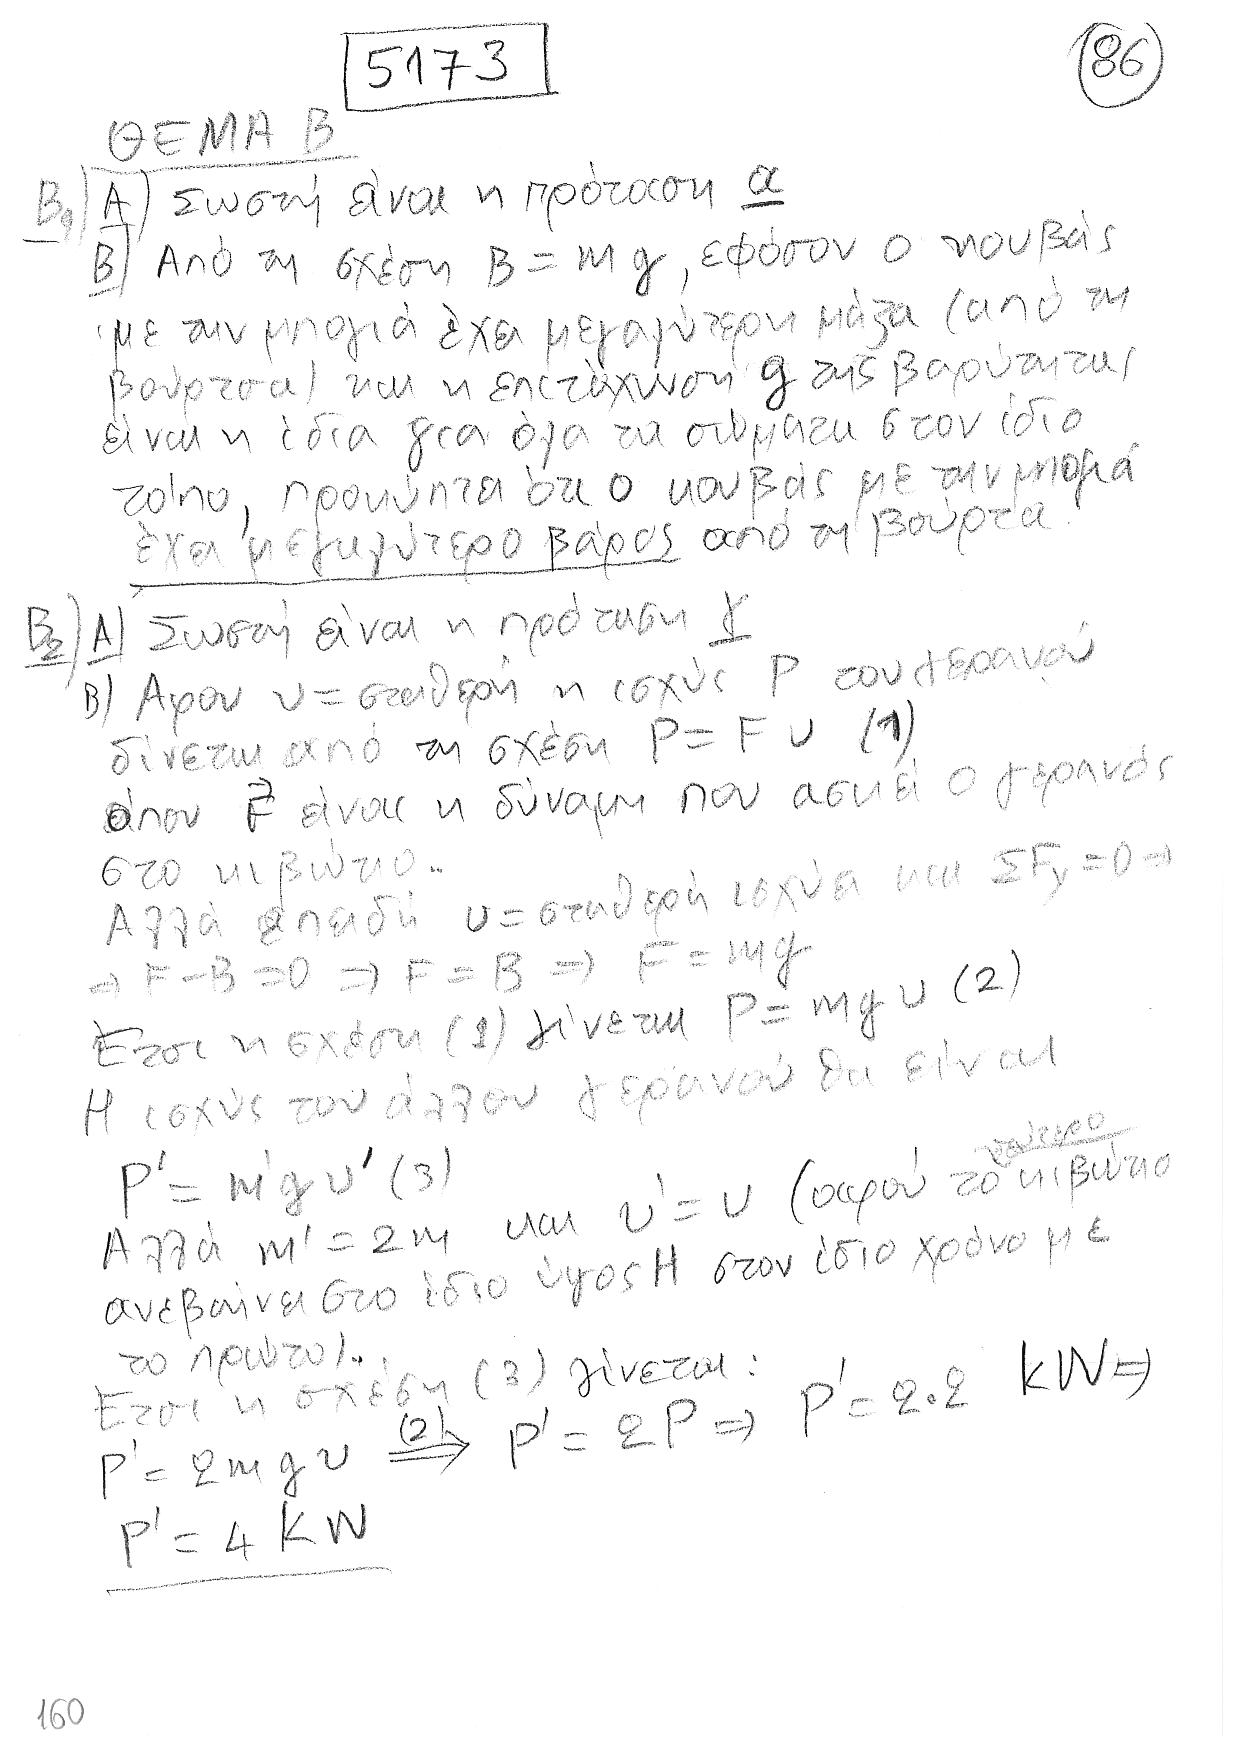 5173
86
ΘΕΜΑ Β
Β1) Α) Σωστή είναι η πρόταση α
Β) Από τη σχέση Β = mg, εφόσον ο κουβάς
με την μπογιά έχει μεγαλύτερη μάζα (από τη
βούρτσα) και η επιτάχυνση g της βαρύτητας
είναι η ίδια για όλα τα σώματα στον ίδιο
τόπο, προκύπτει ότι ο κουβάς με την μπογιά
έχει μεγαλύτερο βάρος από τη βούρτα.
Β2) Α) Σωστή είναι η πρόταση γ
Β) Αφου υ = σταθερή η ισχύς P του γερανού
δίνεται από τη σχέση P = F υ (1)
όπου F⃗ είναι η δύναμη που ασκεί ο γερανός
στο κιβώτιο..
Αλλά επειδή υ = σταθερή ισχύει και ΣFy = 0 ⇒
⇒ F - B = 0 ⇒ F = B ⇒ F = mg
Έτσι η σχέση (1) γίνεται P = mgυ (2)
Η ισχύς του άλλου γερανού θα είναι
P' = m'gυ' (3)
Αλλά m' = 2m και υ' = υ (αφού το δεύτερο κιβώτιο
ανεβαίνει στο ίδιο ύψος Η στον ίδιο χρόνο με
το πρώτο)..
Έτσι η σχέση (3) γίνεται:
P' = 2mgυ (2)⇒ P' = 2P ⇒ P' = 2·2 kW ⇒
P' = 4 kW
160